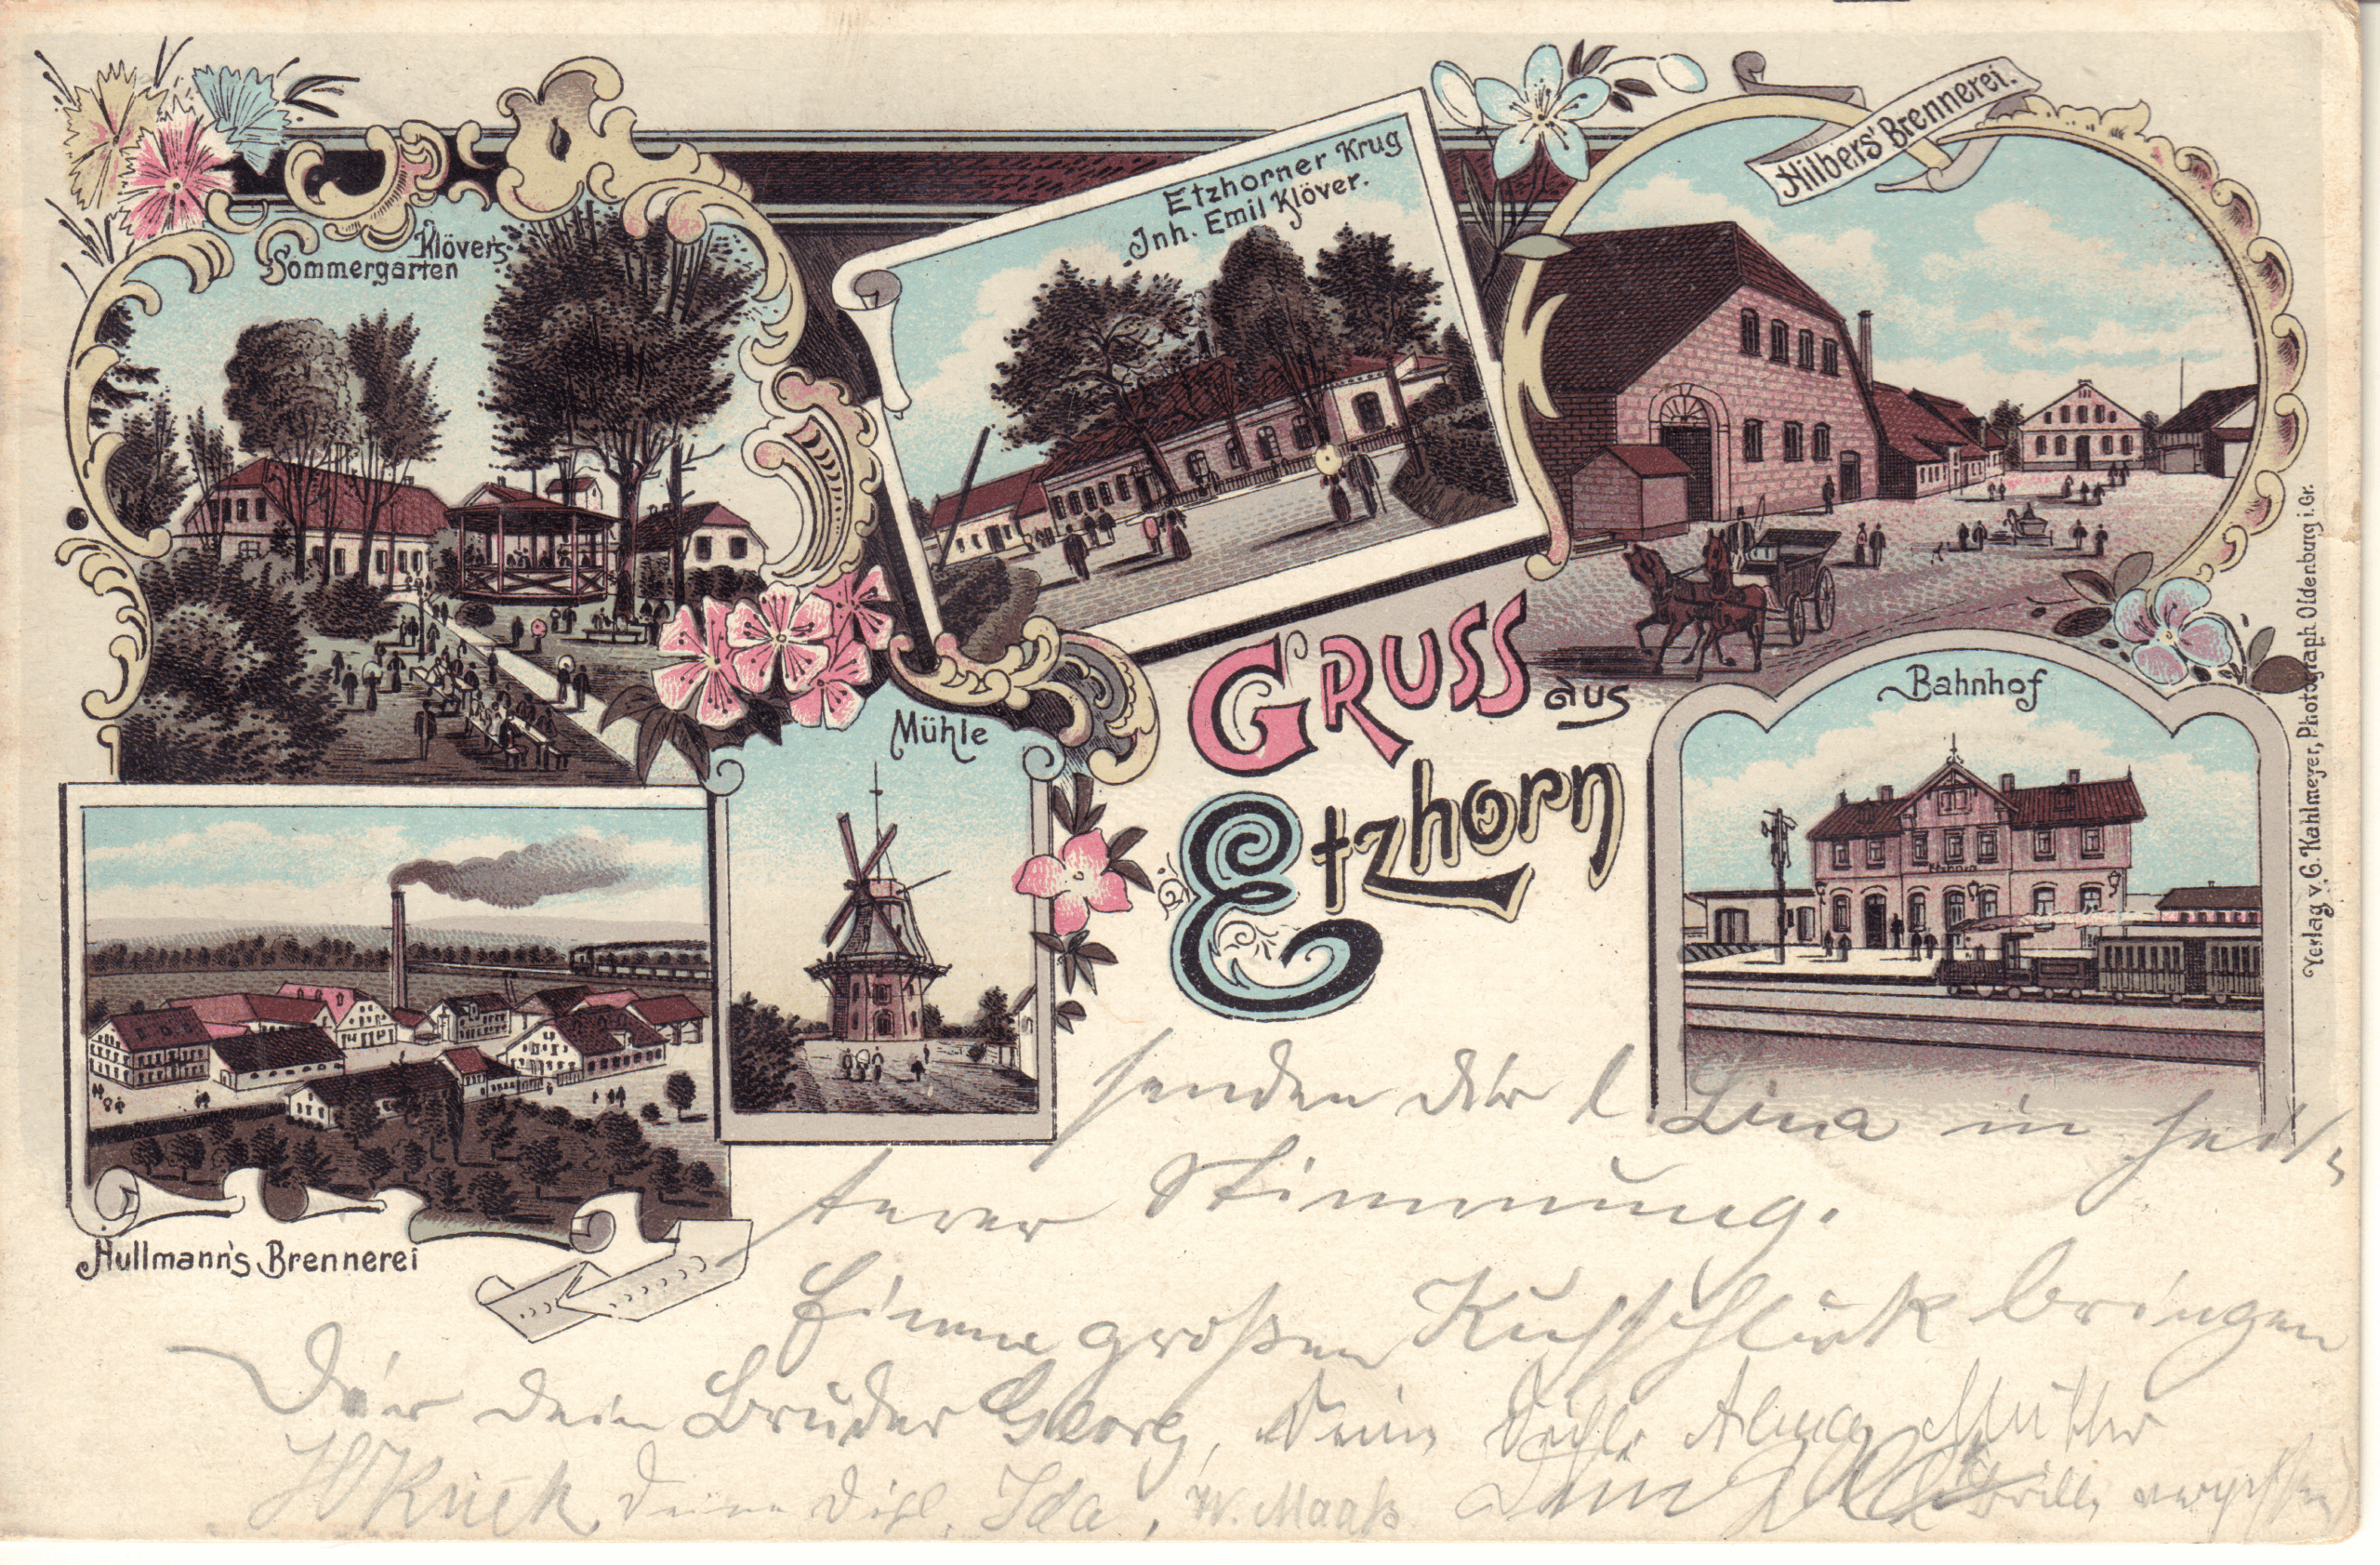 Klövers
Sommergarten
Etzhorner Krug
Inh. Emil Klöver.
Hilbers' Brennerei.
Mühle
Gruss aus
Etzhorn
Bahnhof
Hullmann's Brennerei
Verlag v. G. Kahlmeyer, Photograph Oldenburg i. Gr.
senden dir l. Lina in hei-
terer Stimmung.
Einen großen bringen
Dir dein Bruder Georg, Alma
deine Ida, W. Maaß